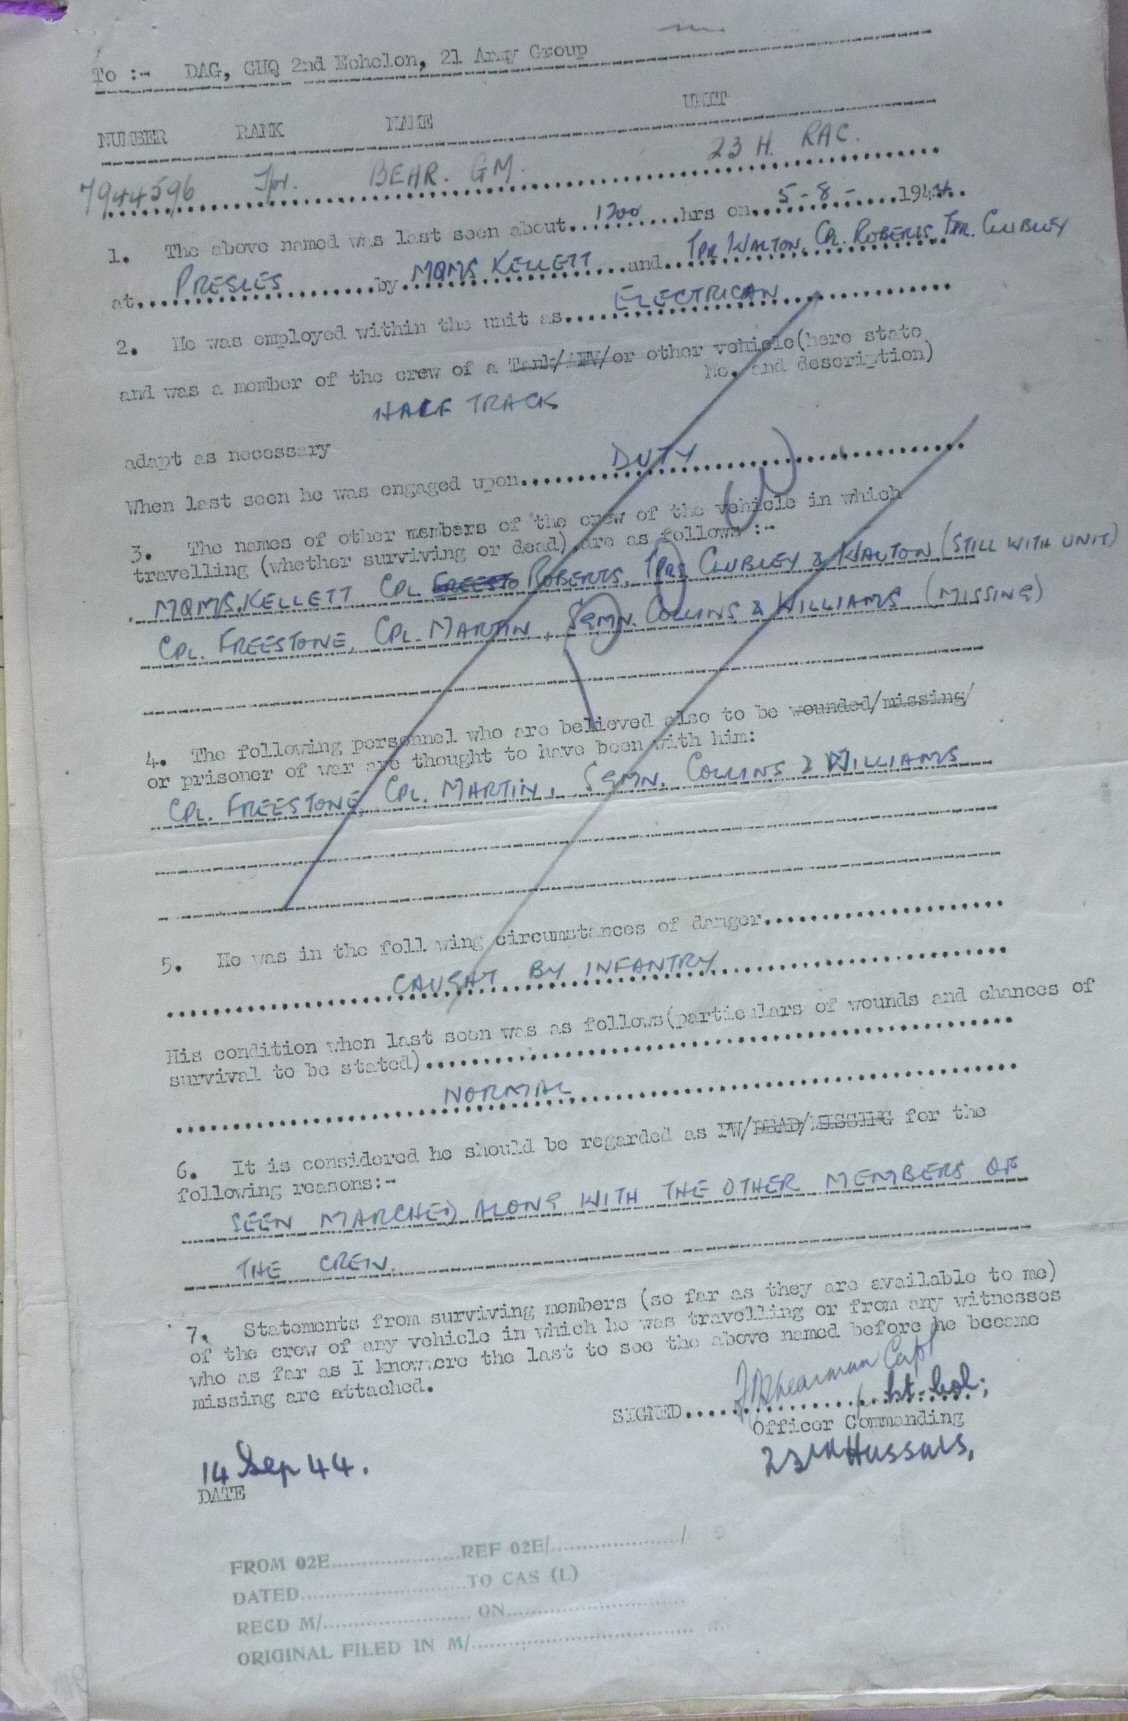 To :- DAG, GHQ 2nd Echelon, 21 Army Group
NUMBER RANK NAME UNIT
7944596 Tpr. BEHR. GM. 23 H. RAC.
1. The above named was last seen about..1700....hrs on..5-8-.....1944..
at...PRESLES.......by MQMS KELLETT...and..TPR WALTON, CPL. ROBERTS, TPR. CLUBLEY
2. He was employed within the unit as...ELECTRICAN.............
and was a member of the crew of a Tank/AFV/or other vehicle(here state
No. and description)
HALF TRACK
adapt as necessary
When last seen he was engaged upon.......DUTY...................
3. The names of other members of the crew of the vehicle in which
travelling (whether surviving or dead) are as follows :-
MQMS. KELLETT CPL. FREESTO ROBERTS, TPRS CLUBLEY & WALTON (STILL WITH UNIT)
CPL. FREESTONE, CPL. MARTIN, SGMN. COLLINS & WILLIAMS (MISSING)
4. The following personnel who are believed also to be wounded/missing/
or prisoner of war are thought to have been with him:
CPL. FREESTONE, CPL. MARTIN, SGMN. COLLINS & WILLIAMS
5. He was in the foll wing circumstances of danger....................
CAUGHT BY INFANTRY
His condition when last seen was as follows(particulars of wounds and chances of
survival to be stated)..................................
NORMAL
6. It is considered he should be regarded as PW/DEAD/MISSING for the
following reasons:-
SEEN MARCHED ALONG WITH THE OTHER MEMBERS OF
THE CREW.
7. Statements from surviving members (so far as they are available to me)
of the crew of any vehicle in which he was travelling or from any witnesses
who as far as I know were the last to see the above named before he became
missing are attached.
Shearman Capt
SIGNED............/.Lt-Col;
Officer Commanding
23rd Hussars.
14 Sep 44.
DATE
FROM 02E....................REF 02E/...................../
DATED..........................TO CAS (L)
RECD M/....................... ON............................
ORIGINAL FILED IN M/...................................